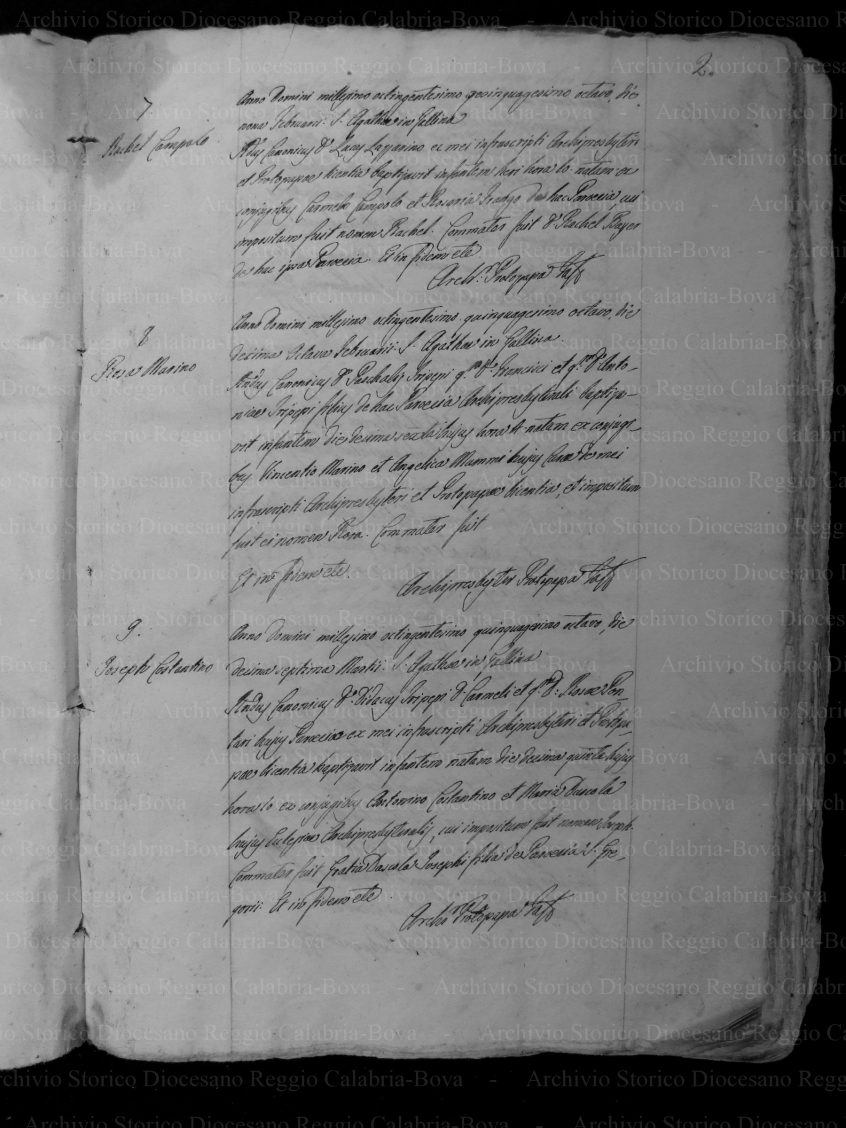 2.
7
Rachel Campolo
Anno Domini millesimo octingentesimo quinquagesimo octavo, die
nona Februarii. S. Agathae in Gallina
Canonicus D. Lucas Lazzarino ex mei infrascripti Archipresbyteri
et Protopapae licentia baptizavit infantem heri hora 10 natam ex
conjugibus Carmelo Campolo et Rosaria de hac Paroecia cui
impositum fuit nomen Rachel. Commater fuit D. Rachel
de hac ipsa Paroecia. Et in fidem etc
Arch. Protopapa
8
Rosa Marino
Anno Domini millesimo octingentesimo quinquagesimo octavo, die
decima octava Februarii. S. Agathae in Gallina.
Canonicus D. Paschalis Tripepi q.m D. Francisci et q.m D. Anto-
niae Tripepi filius de hac Paroecia Archipresbyterali baptiza-
vit infantem die decima sexta hujus hora natam ex conjugi-
bus Vincentio Marino et Angelica Mammi hujus de mei
infrascripti Archipresbyteri et Protopapae licentia, et impositum
fuit ei nomen Rosa. Commater fuit
Et in fidem etc.
Archipresbyter Protopapa
9.
Joseph Costantino
Anno Domini millesimo octingentesimo quinquagesimo octavo, die
decima septima Martii. S. Agathae in Gallina
Canonicus D. Didacus Tripepi D. Carmeli et q.m D. Rosae
hujus Paroecia ex mei infrascripti Archipresbyteri et Protopa-
pae licentia baptizavit infantem natum die decima quinta hujus
hora 10 ex conjugibus Antonino Costantino et Maria Dascola
hujus Ecclesiae Archipresbyteralis, cui impositum fuit nomen Joseph.
Commater fuit Gratia Dascola Josephi filia de Paroecia S. Gre-
gorii. Et in fidem etc.
Arch. Protopapa
Archivio Storico Diocesano Reggio Calabria-Bova